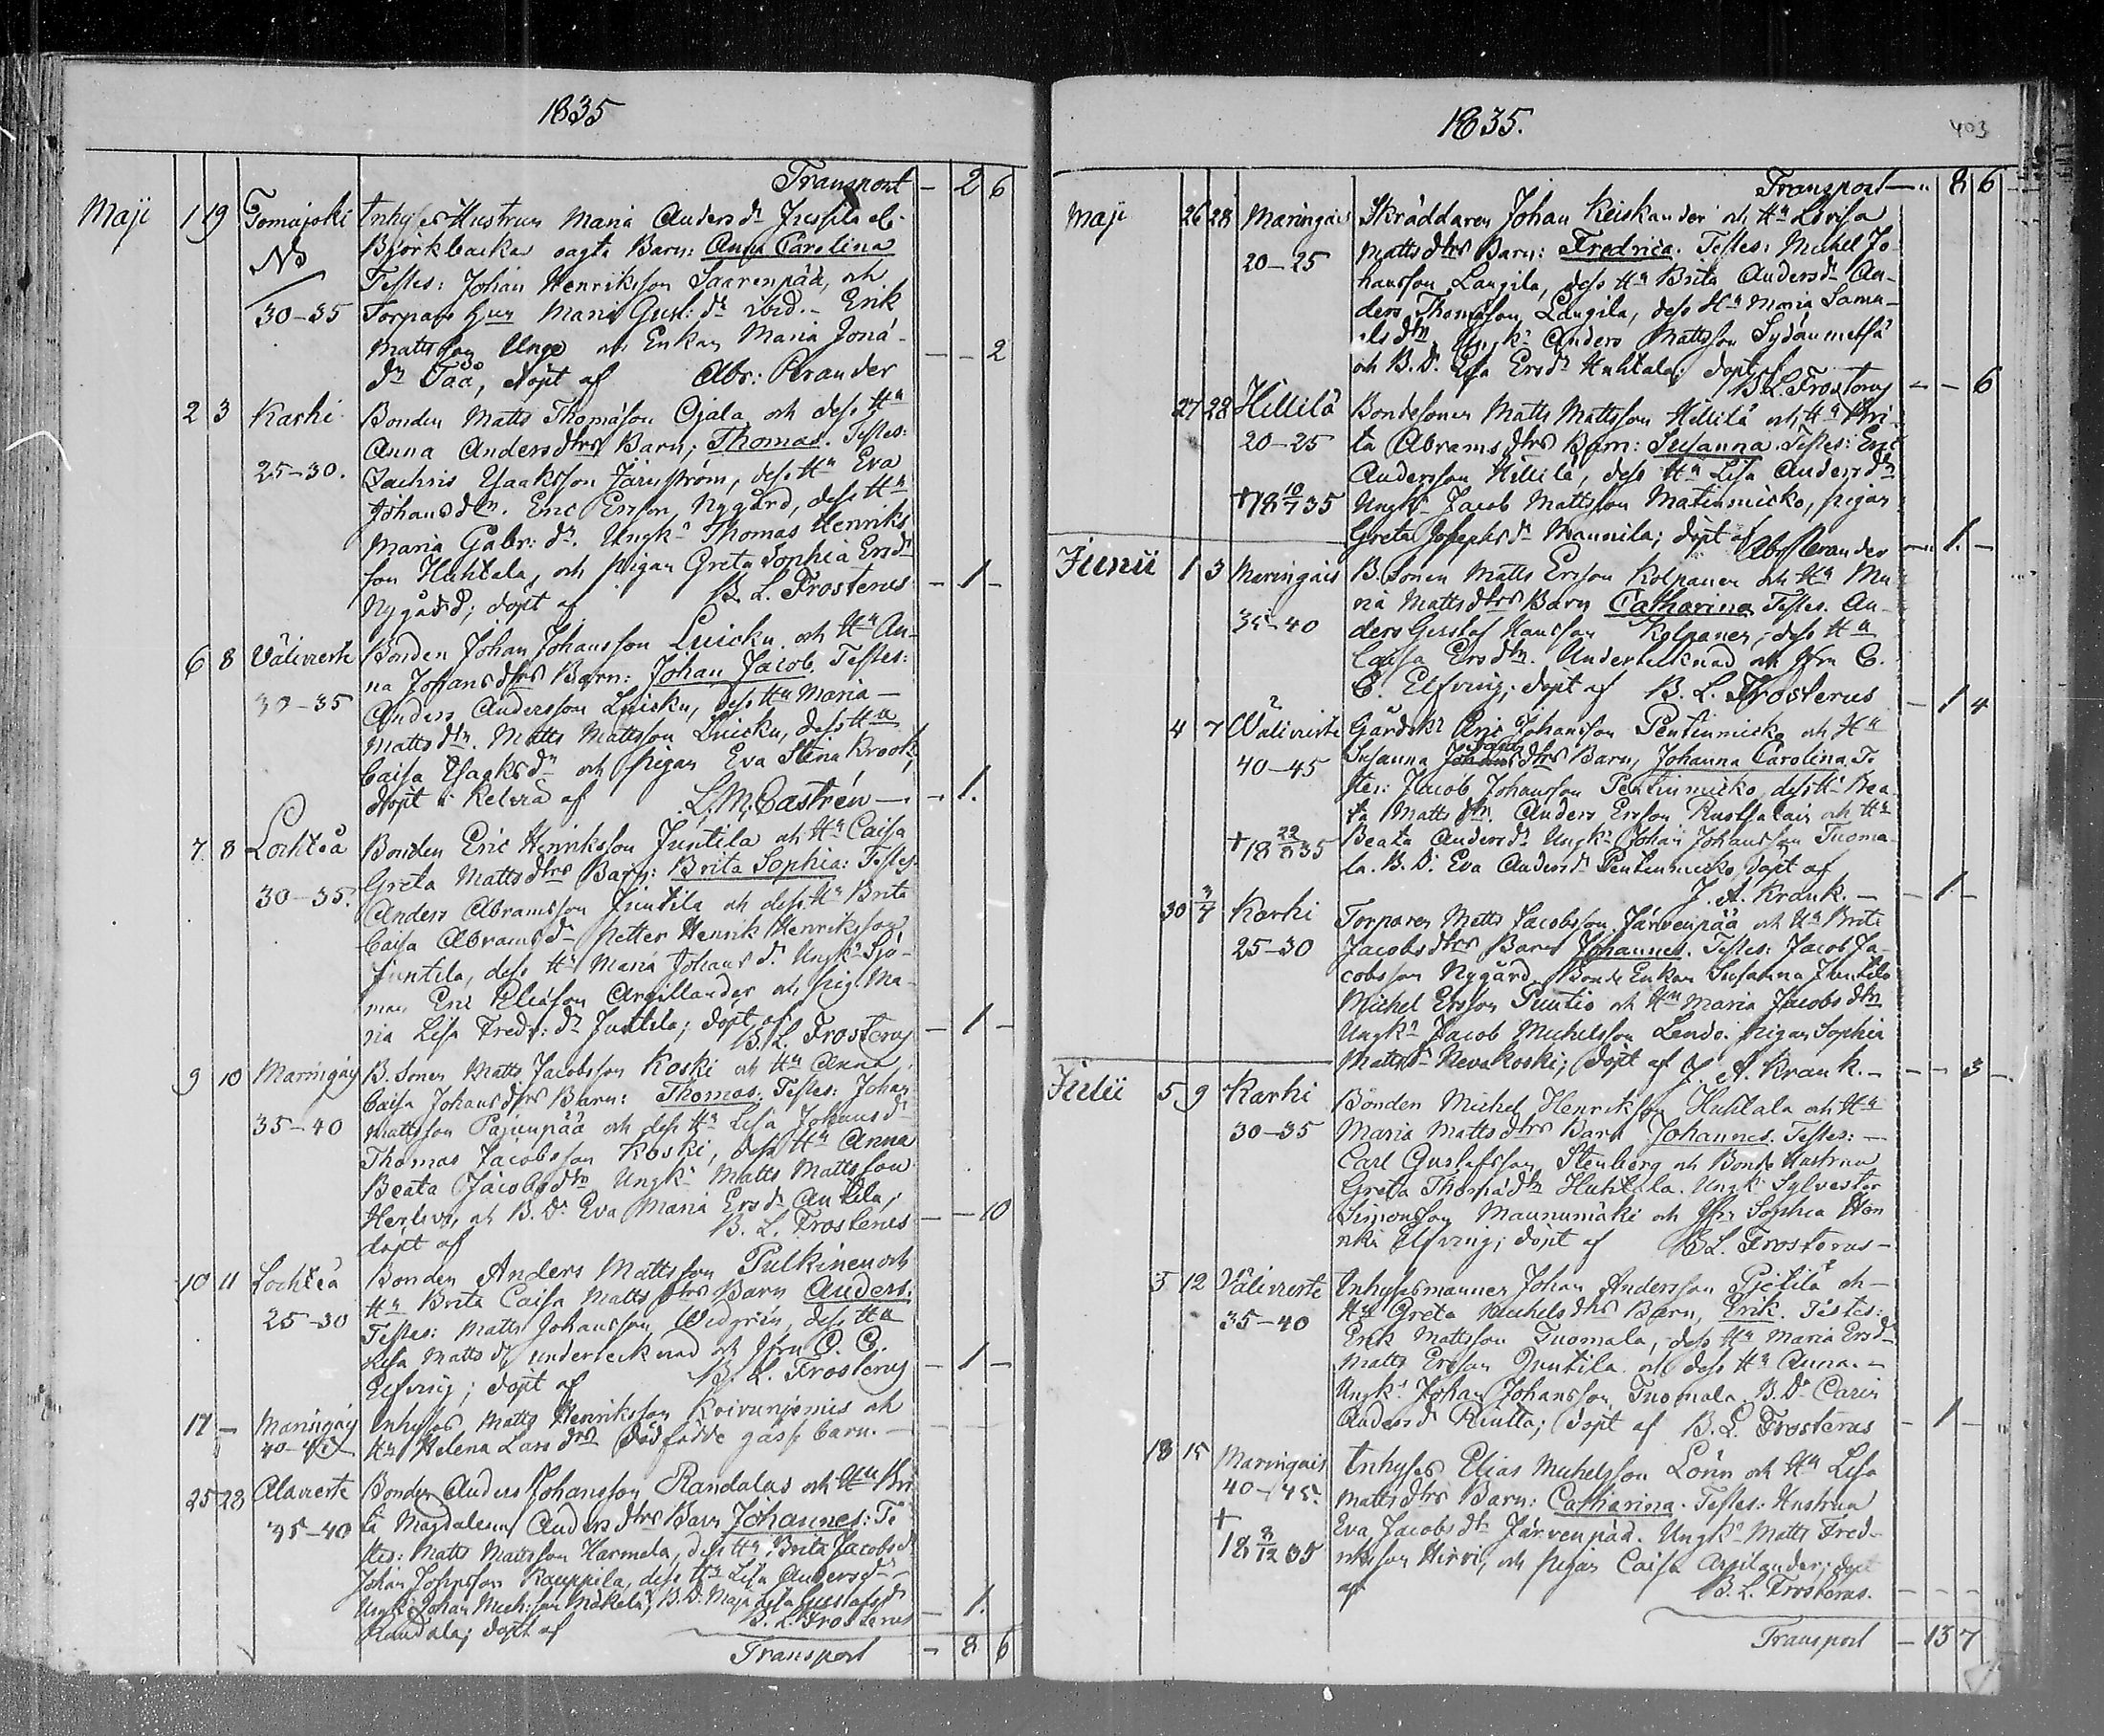 1835
Transport — 2 6
Maji 1 19 Tomujoki Inhyses Hustrun Maria Anders dr
No Björkbacka oagta Barn: Anna Carolina
Testes: Johan Henriksson Saarenpää, och
30–35 Torpare Maria Gust: dr ibid. Erik
Mattsson Unge och Enkan Maria Jona
dr Tåå, döpt af Abr: Perander — — 2
2 3 Karhi Bonden Matts Thomasson Ojala och dess Hu
Anna Andersdtrs Barn; Thomas. Testes:
25–30. Zachris Ysaaksson Järnström, dess Hu Eva
Johansdtr. Eric Ersson Nygård, dess Hu
Maria Gabr: dr. Ungkn Thomas Henriks
son Huhtala, och pigan Greta Sophia Ersdr
Nygård; döpt af B. L. Frosterus — 1 —
6 8 Välivierte Bonden Johan Johansson Luicku och Hu An-
na Johansdtrs Barn: Johan Jacob. Testes:
30–35 Anders Andersson Luicku, dess Hu Maria —
Mattsdtr. Matts Mattsson Luicku, dess Hu
Caisa Ysaksdr och pigan Eva Stina Krook,
döpt i Kelviå af L. M. Castrén — — 1.
7. 8 Lochteå Bonden Eric Henriksson Juntila och Hu Caisa
Greta Mattsdtrs Barn: Brita Sophia: Testes
30–35. Anders Abramsson Juntila och dess Hu Brita
Caisa Abramsdr Petter Henrik Henriksson
Juntila, dess Hu Maria Johans dr Ungkn Sjö-
man Eric Eliasson Argillander och pig. Ma-
ria Lisa Fredr: dr Juntila; döpt af
B. L. Frosterus — 1 —
9 10 Maringais B. Sonen Matts Jacobsson Koski och Hu Anna
Caisa Johansdtrs Barn: Thomas. Testes: Johan
35–40 Mattsson Pajunpää och dess Hu Lisa Johansdr
Thomas Jacobsson Koski, dess Hu Anna
Beata Jacobsdtr Ungkn Matts Mattsson
Herlevi, och B. Dr Eva Maria Ersdr Antila;
döpt af B. L. Frosterus — — 10
10 11 Lochteå Bonden Anders Mattsson Pulkinen och
Hu Brita Caisa Mattsdtrs Barn Anders:
25–30 Testes: Matts Johansson Widgrén, dess Hu
Lisa Mattsdr undertecknad och Jfru C. C.
Elfving; döpt af B. L. Frosterus — 1 —
17 — Maringais Inhyses Matts Henriksson Koivuniemis och
40–45 Hu Helena Larsdtrs dödfödde gosse barn. —
25 28 Alavierte Bonden Anders Johansson Randalas och Hu Bri
35–40 ta Magdalena Andersdtrs Barn Johannes: Te
stes: Matts Mattsson Harmala, dess Hu Brita Jacobsdr
Johan Johnsson Kauppila, dess Hu Lisa Andersdr
Ungkn Johan Mich:son Mäkelä, B. Dr Maja Lisa Gustafsdr
Randala; döpt af B. L. Frosterus — 1.
Transport — 8 6
1835.
403
Transport — 8 6
Maji 26 28 Maringais Skräddaren Johan Keiskander och Hu Lovisa
20–25 Mattsdtrs Barn: Fredrica. Testes: Michel Jo-
hansson Laugila, dess Hu Brita Andersdr An-
ders Thomasson Laugila, dess Hu Maria Samu-
elsdtr, Ungkn Anders Mattsson Sydänmetsä
och B. Dr Lisa Ersdr Huhtala; döpt af
B. L. Frosterus — — 6
27 28 Hillilä Bondesonen Matts Mattsson Hillilä och Hu Bri-
20–25 ta Abramsdtrs Barn: Susanna. Testes: Eric
Andersson Hillilä, dess Hu Lisa Andersdtr
+ 18 10/7 35 Ungkn Jacob Mattsson Matinmicko, pigan
Greta Josephsdr Mannila; döpt af Abr Perander — 1. —
Junii 1 3 Maringais B. Sonen Matts Ersson Kolpanen och Hu Ma
ria Mattsdtrs Barn Catharina Testes. An-
35–40 ders Gustaf Hansson Kolpanen, dess Hu
Caisa Ersdtr. Undertecknad och Jfru C.
C. Elfving; döpt af B. L. Frosterus — 1 4
4 7 Wälivierte Gårdskn Eric Johansson Pentinmicko och Hu
40–45 Susanna Johansdtrs Barn, Johanna Carolina. Te
stes: Jacob Johansson Pentinmicko, dess Hu Bea-
ta Mattsdtr. Anders Ersson Ruotsalain och Hu
+ 18 22/8 35 Beata Andersdr Ungkn Johan Johansson Tuoma-
la. B. Dr Eva Andersdr Pentinmicko, döpt af
J. A. Krank. — — 1 —
30 3/7 Karhi Torparen Matts Jacobsson Järvenpää och Hu Brita
25–30 Jacobsdtrs Barn Johannes. Testes: Jacob Ja-
cobsson Nygård, Bonde Enkan Susanna Juntila
Michel Ersson Puutio och Hu Maria Jacobsdtr
Ungkn Jacob Michelsson Lendo. pigan Sophia
Mattsdr Nevakoski; döpt af J. A. Krank. — — 3 —
Julii 5 9 Karhi Bonden Michel Henriksson Huhtala och Hu
30–35 Maria Mattsdtrs Barn Johannes. Testes: —
Carl Gustafsson Stenberg och Bonde Hustrun
Greta Thomädtr Huhtala. Ungkn Sylvester
Simonsson Maunumäki och Jfr Sophia Hen
rika Elfving; döpt af B. L. Frosterus —
5 12 Välivierte Inhysesmannen Johan Andersson Pietilä och —
35–40 Hu Greta Michelsdtrs Barn, Erik. Testes:
Erik Mattsson Tuomala, dess Hu Maria Ersdr
Matts Ersson Juntila och dess Hu Anna. —
Ungkn Johan Johansson Tuomala B. Dr Carin
Andersdr Riutta; döpt af B. L. Frosterus — 1 —
13 15 Maringais Inhyses Elias Michelsson Lönn och Hu Lisa
40–45. Mattsdtrs Barn: Catharina. Testes: Hustrun
+ Eva Jacobsdtr Järvenpää. Ungkn Matts Fred-
18 3/12 35 riksson Hirvi, och pigan Caisa Argilander; döpt
af B. L. Frosterus. — — —
Transport — 13 7